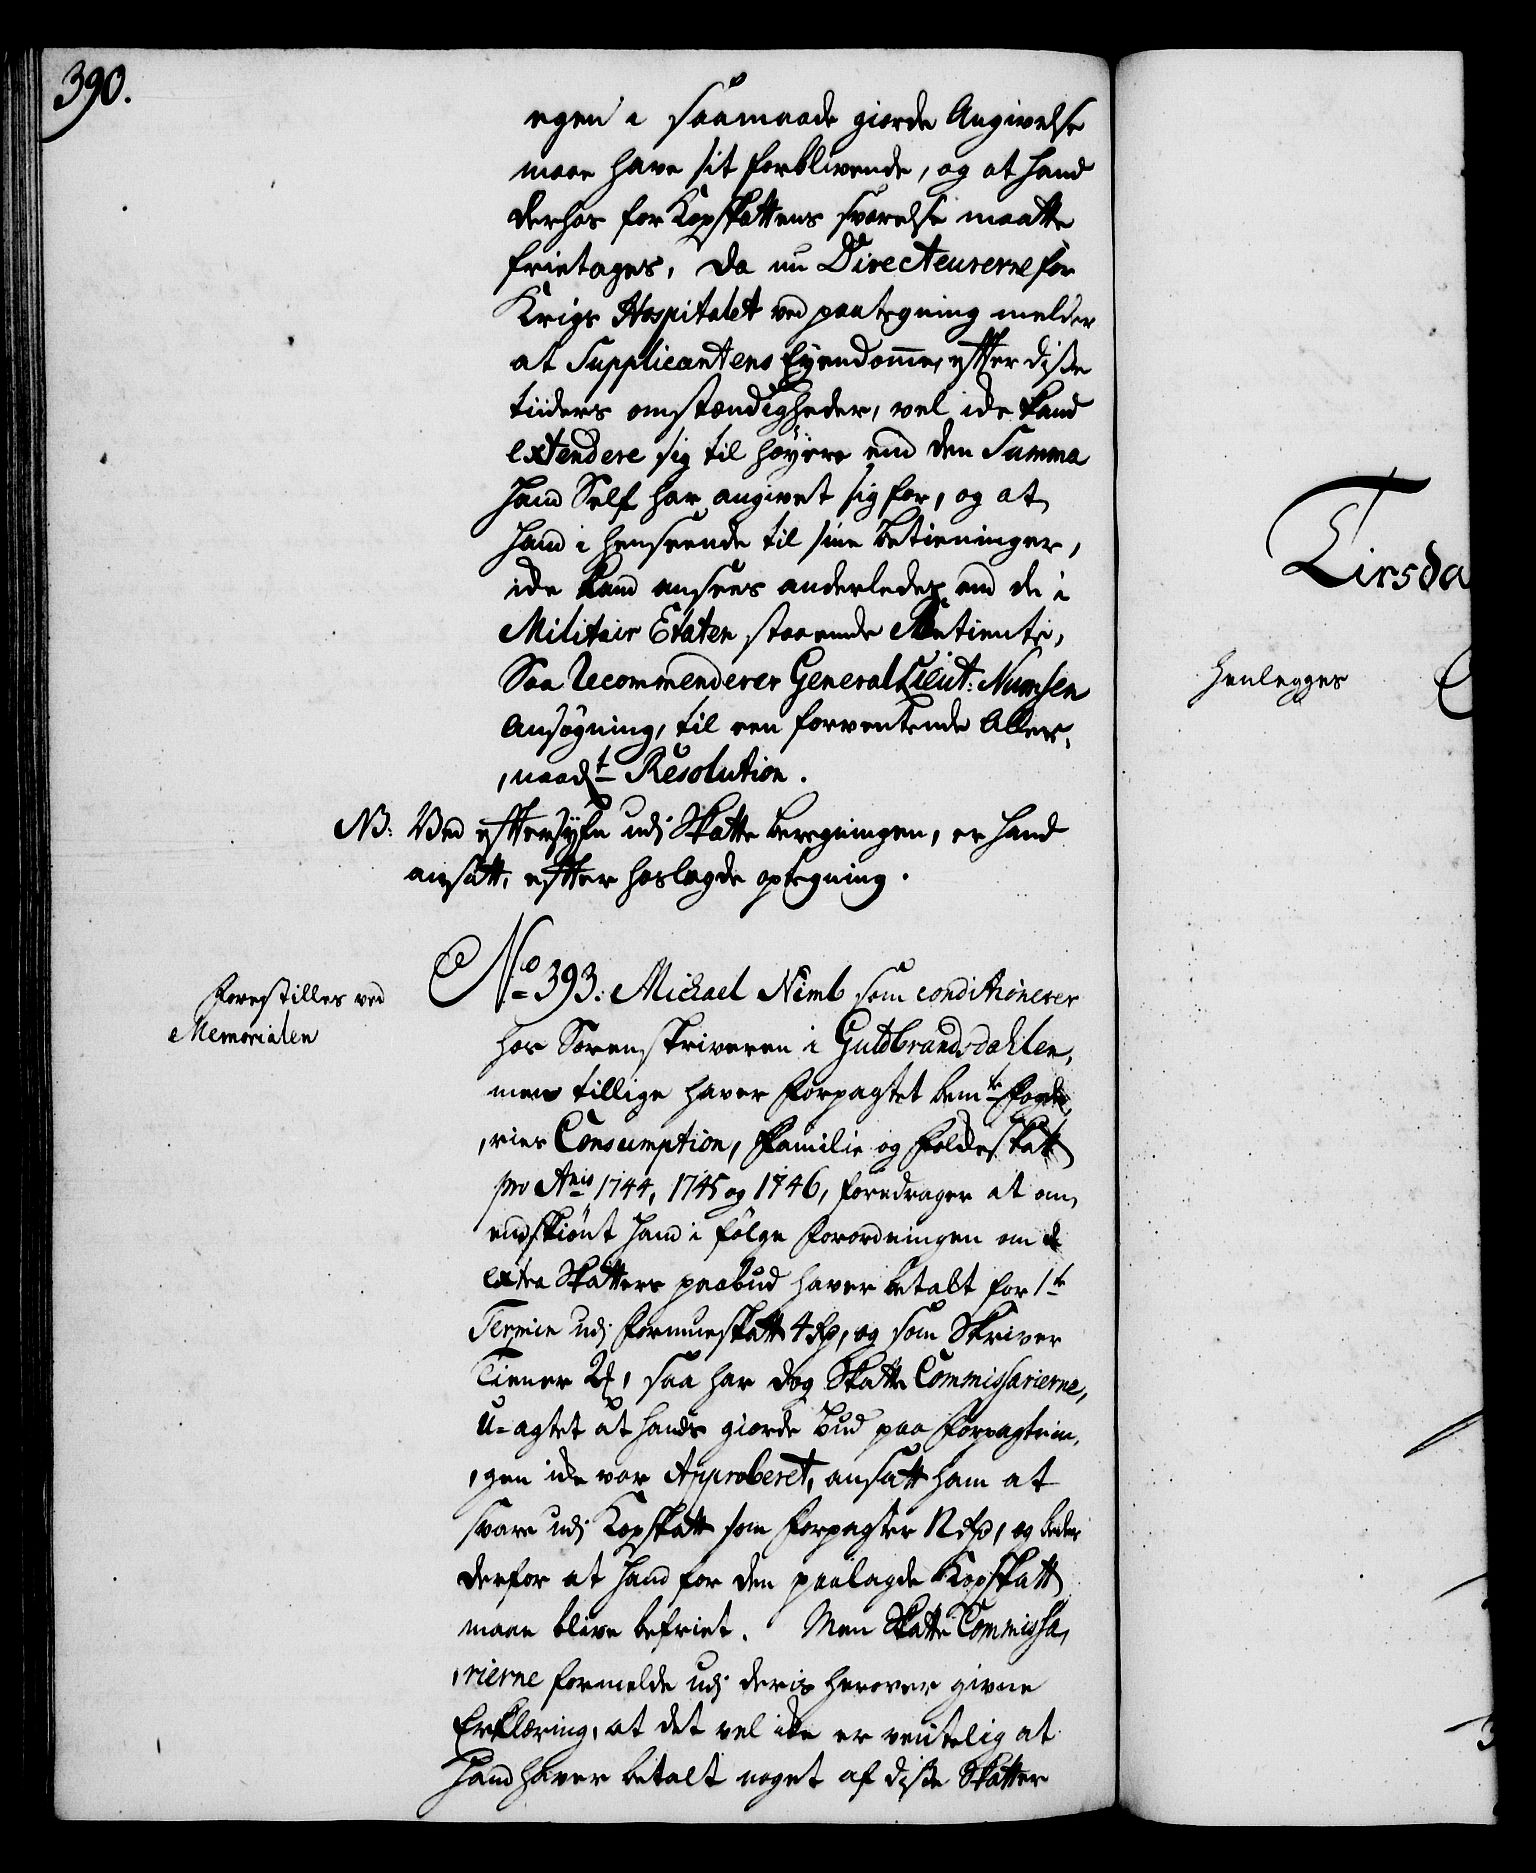 390.
egen i saamaade giorde Angivelse
maae have sit forblivende, og at hand
derhos for Kopskattens svarelse maatte
fritages, Da nu Directeurerne for
Krigs Hospitalet ved paategning melder
at Supplicantens Eyendomme, efter disse
tiiders omstændigheder, vel icke kand
extendere sig til høyere end den Summa
hand Self har angivet sig for, og at
hand i henseende til sine betieninger,
icke kand ansees anderledes end de i
Militair Etaten staaende Betiente,
Saa Recommenderer General Lieut: Numsen
Ansøgning, til een forventende Aller-
naad.t Resolution.
NB: Ved eftersyfn udj Skatte beregningen, er hand
ansatt, efter hoslagde optegning.
Forestilles ved
Memorialen
No 393. Michael Nimb som conditionerer
hos Sorenskriveren i Guldbrandsdahlen,
men tillige haver Forpagtet bem.te Fogde-
ries Consumption, Familie og Folkeskatt
pro Anis 1744, 1745 og 1746, foredrager at om-
endskiönt hand i følge Forordningen om de
extra Skatters paabud haver betalt for 1.te
Termin udj Formueskatt 4 Rd, og som Skriver
Tiener 2 , saa har dog Skatte Commissarierne,
U-agtet at hands giorde bud paa Forpagtnin-
gen icke var Approberet, ansatt ham at
svare udj Kopskatt som Forpagter 12 Rd, og beder
derfor at hand for den paalagde Kopskatt
maae blive befriet. Men Skatte Commissa-
rierne formelde udj deris herover givne
Erklæring, at det vel icke er ventelig at
hand haver betalt noget af disse Skatter
Tirsda
Henlegges